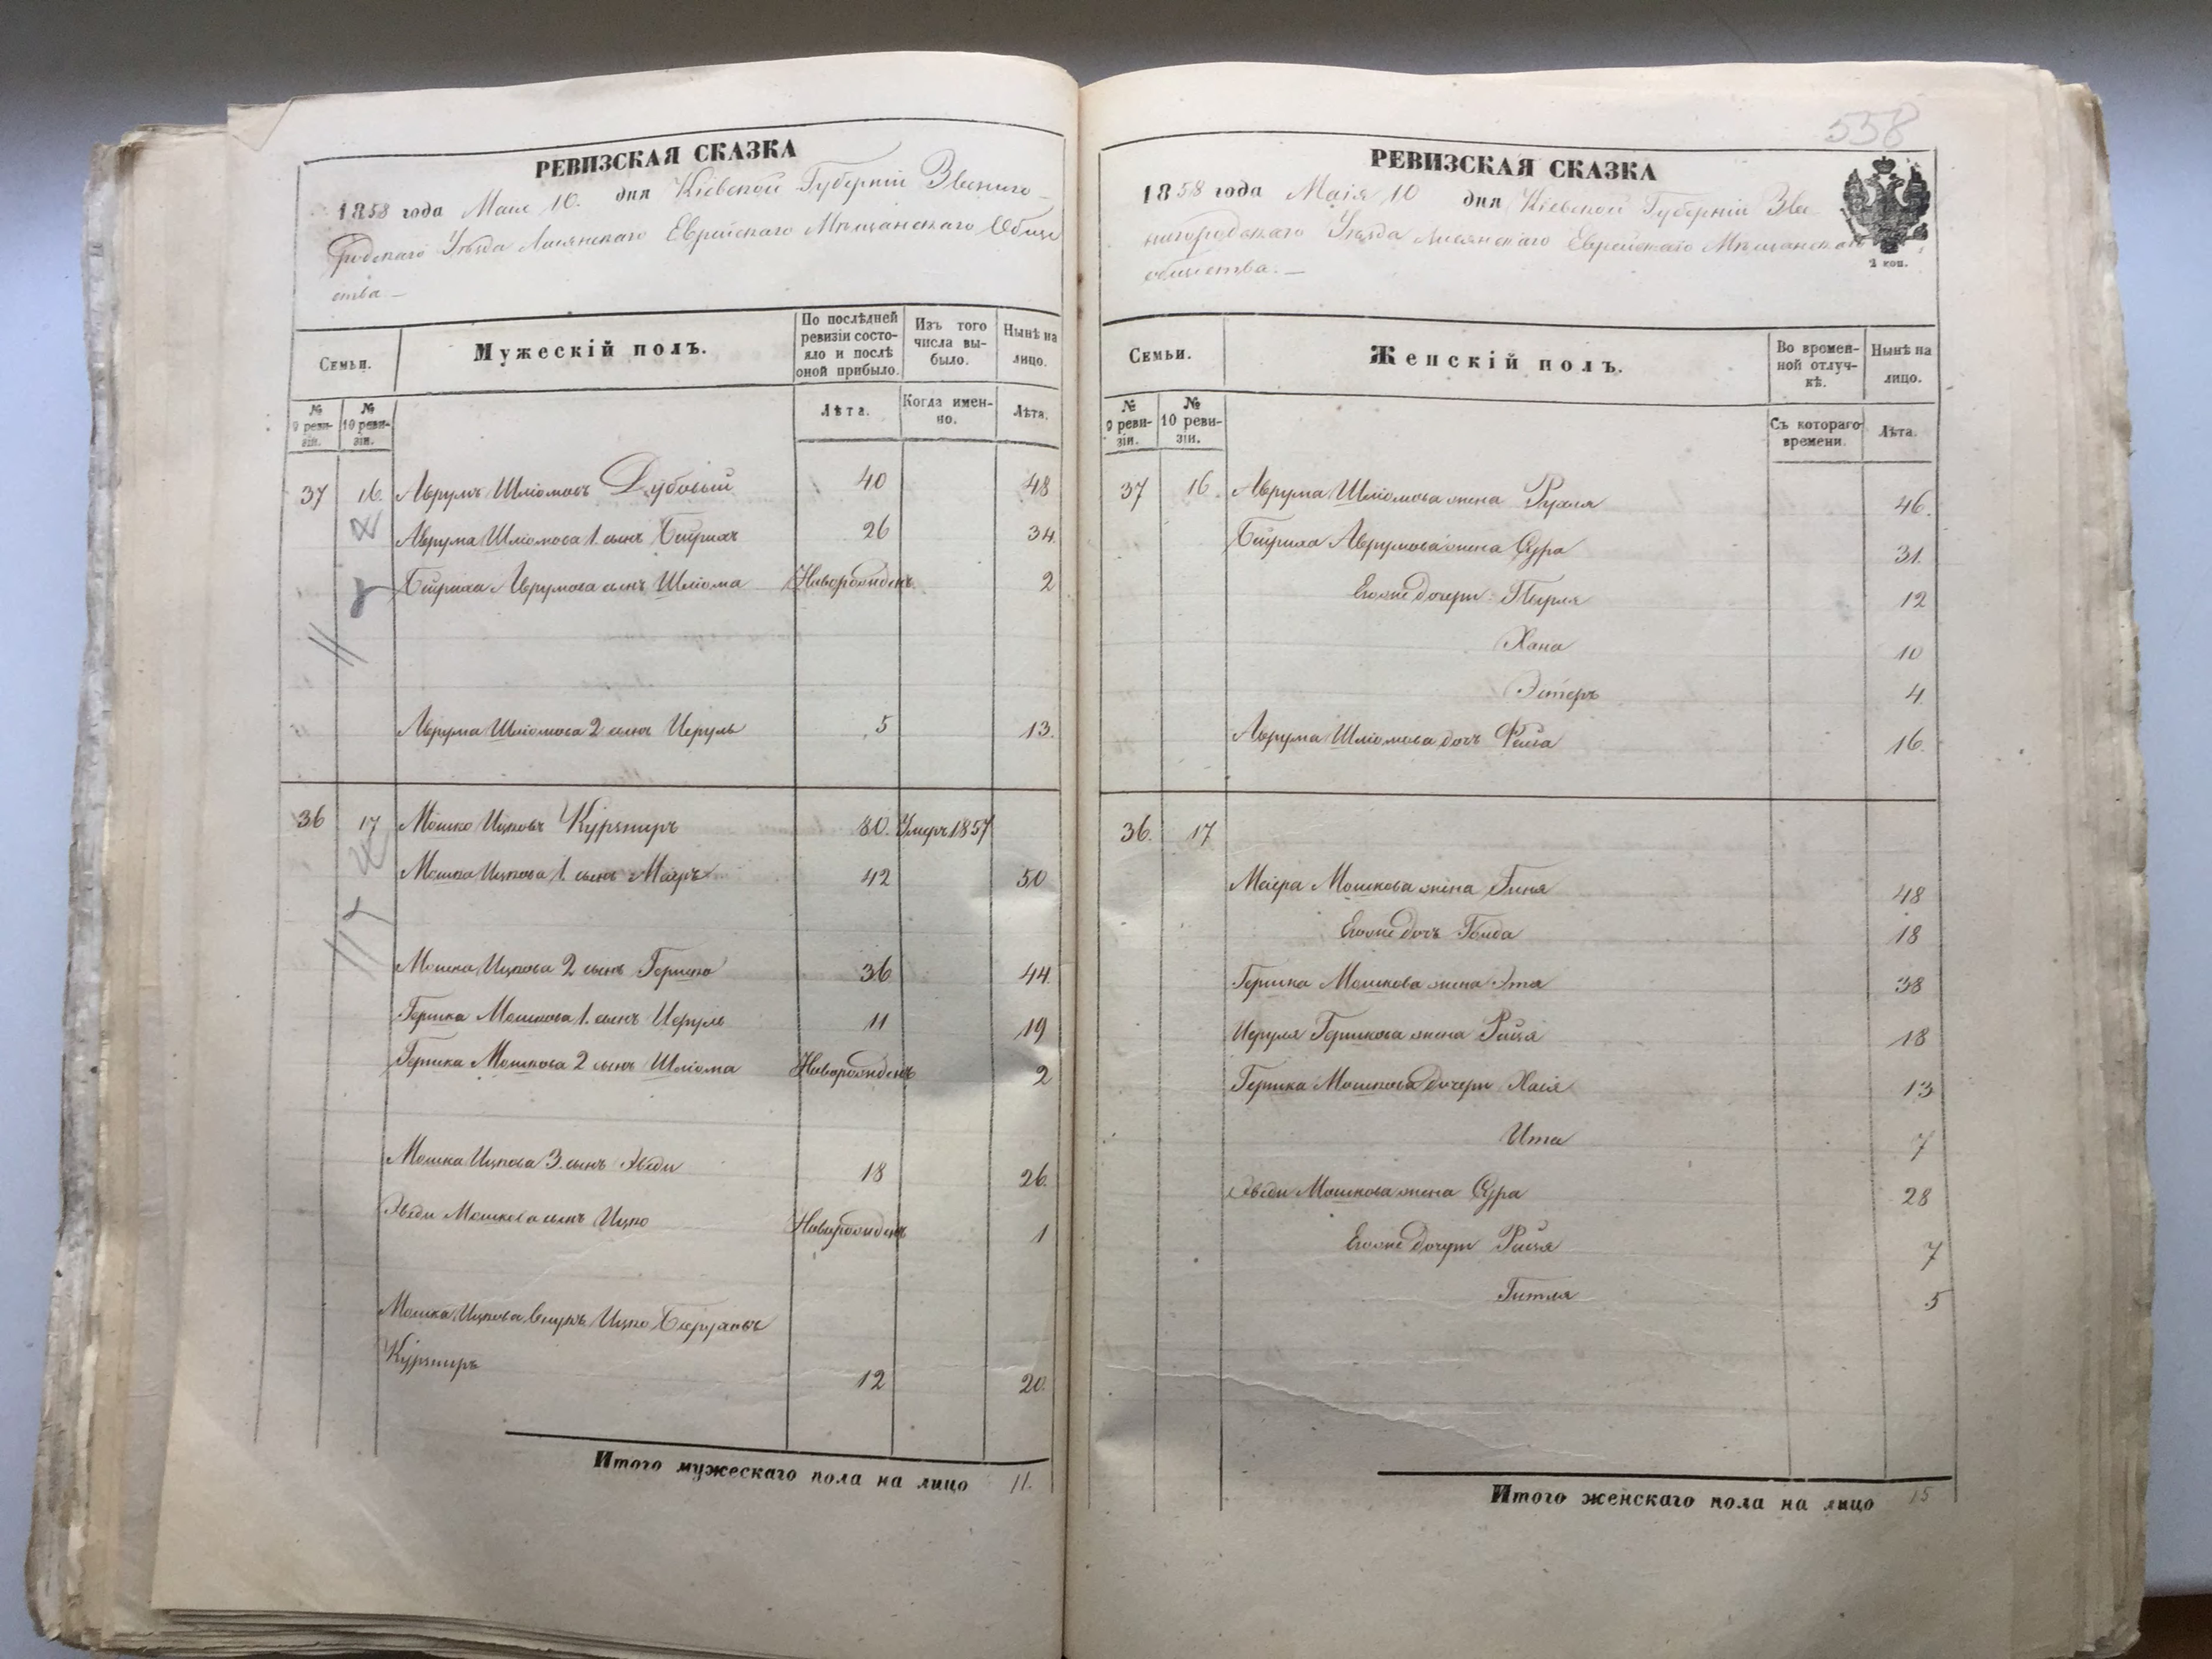 РЕВИЗСКАЯ СКАЗКА
1858 года Маія 10. дня Кіевской Губерніи Звениго-
родскаго Уѣзда Лисянскаго Еврейскаго Мѣщанскаго Обще
ства.—
Семьи.
Мужескій полъ.
По послѣдней ревизіи состояло и послѣ оной прибыло.
Изъ того числа выбыло.
Нынѣ на лицо.
№ 9 ревизіи.
№ 10 ревизіи.
Лѣта.
Когда именно.
Лѣта.
37 16. Аврумъ Шліомовъ Дубовый 40 48
Аврума Шліомова 1. сынъ Бейрихъ 26 34.
Бейриха Аврумова сынъ Шліома Новорожденъ. 2
Аврума Шліомова 2 сынъ Исруль 5 13.
36 17 Мошко Ицковъ Куряниръ 80. Умеръ 1857
Мошка Ицкова 1. сынъ Маеръ 42 50
Мошка Ицкова 2 сынъ Гершко 36 44.
Гершка Мошкова 1. сынъ Исруль 11 19
Гершка Мошкова 2 сынъ Шліома Новорожденъ 2
Мошка Ицкова 3. сынъ 18 26.
Мошкова сынъ Ицко Новорожденъ 1
Мошка Ицкова внукъ Ицко Беруховъ
Куряниръ 12 20.
Итого мужескаго пола на лицо 11.
558
РЕВИЗСКАЯ СКАЗКА
1858 года Маія 10 дня Кіевской Губерніи Зве
нигородскаго Уѣзда Лисянскаго Еврейскаго Мѣщанскаго
общества.—
1 коп.
Семьи.
Женскій полъ.
Во временной отлучкѣ.
Нынѣ на лицо.
№ 9 ревизіи.
№ 10 ревизіи.
Съ котораго времени.
Лѣта.
37 16. Аврума Шліомова жена Рухля 46.
Бейриха Аврумова жена Сура 31.
Его же дочери Перля 12
Хана 10
Эстеръ 4
Аврума Шліомова дочь Фейга 16.
36. 17
Меера Мошкова жена 48
Его же дочь Голда 18
Гершка Мошкова жена Этя 38
Исруля Гершкова жена Рейзя 18
Гершка Мошкова дочери Хася 13
Ита 7
Мошкова жена Сура 28
Его же дочери Рейзя 7
Гитля 5
Итого женскаго пола на лицо 15